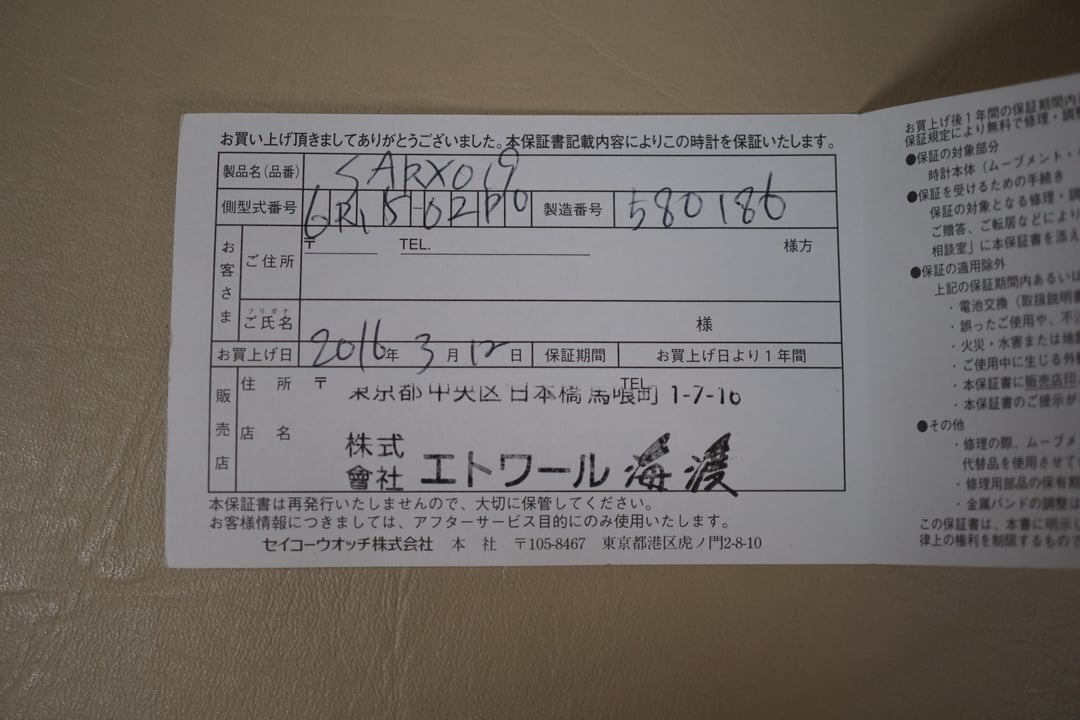 お買い上げ頂きましてありがとうございました。本保証書記載内容によりこの時計を保証いたします。
製品名(品番) SARX019
側型式番号 6R15-02D0 製造番号 580186
お客さま
ご住所 〒 TEL. 様方
フリガナ
ご氏名 様
お買上げ日 2016年 3月 12日 保証期間 お買上げ日より1年間
販売店
住所 〒 TEL.
東京都中央区日本橋馬喰町 1-7-16
店名 株式會社 エトワール海渡
本保証書は再発行いたしませんので、大切に保管してください。
お客様情報につきましては、アフターサービス目的にのみ使用いたします。
セイコーウオッチ株式会社 本社 〒105-8467 東京都港区虎ノ門2-8-10
お買上げ後1年間の保証期間内
保証規定により無料で修理・調整
●保証の対象部分
時計本体(ムーブメント・
●保証を受けるための手続き
保証の対象となる修理・調
ご贈答、ご転居などにより
相談室」に本保証書を添え
●保証の適用除外
上記の保証期間内あるいは
・電池交換(取扱説明書
・誤ったご使用や、不注
・火災・水害または地震
・ご使用中に生じる外観
・本保証書に販売店印
・本保証書のご提示が
●その他
・修理の際、ムーブメ
代替品を使用させて
・修理用部品の保有期
・金属バンドの調整は
この保証書は、本書に明示
律上の権利を制限するもので